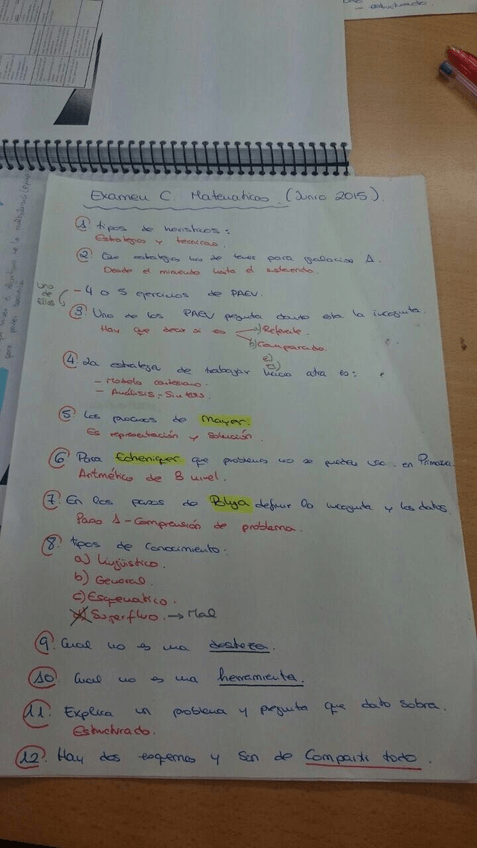 estructurado.
Examen C. Matematicas. (Junio 2015).
① tipos de heristicos:
Estrategias y tecnicas.
② Que estrategia has de tener para
Desde el minuto hasta el
- 4 o 5 ejercicios de PAEV.
③ Uno de los PAEV pregunta donde esta la incognita.
Hay que decir si es a) Referente.
b) Comparado.
④ La estrategia de trabajar hacia atras es:
- Metodo cartesiano.
- Análisis-Sintesis.
⑤ Los procesos de Mayer.
Es representación y solución.
⑥ Para Echenique que problema no se puede usar en Primaria
Aritmético de 3 nivel.
⑦ En los pasos de Polya definir la incognita y los datos.
Paso 1 - Comprensión de problema.
⑧ tipos de conocimiento:
a) Lingüístico.
b) General.
c) Esquematico.
d) Superfluo. → Mal
⑨ Cual no es una destreza.
⑩ Cual no es una herramienta.
⑪ Explica un problema y pregunta que dato sobra.
Estructurado.
⑫ Hay dos esquemas y son de Compartir todo.